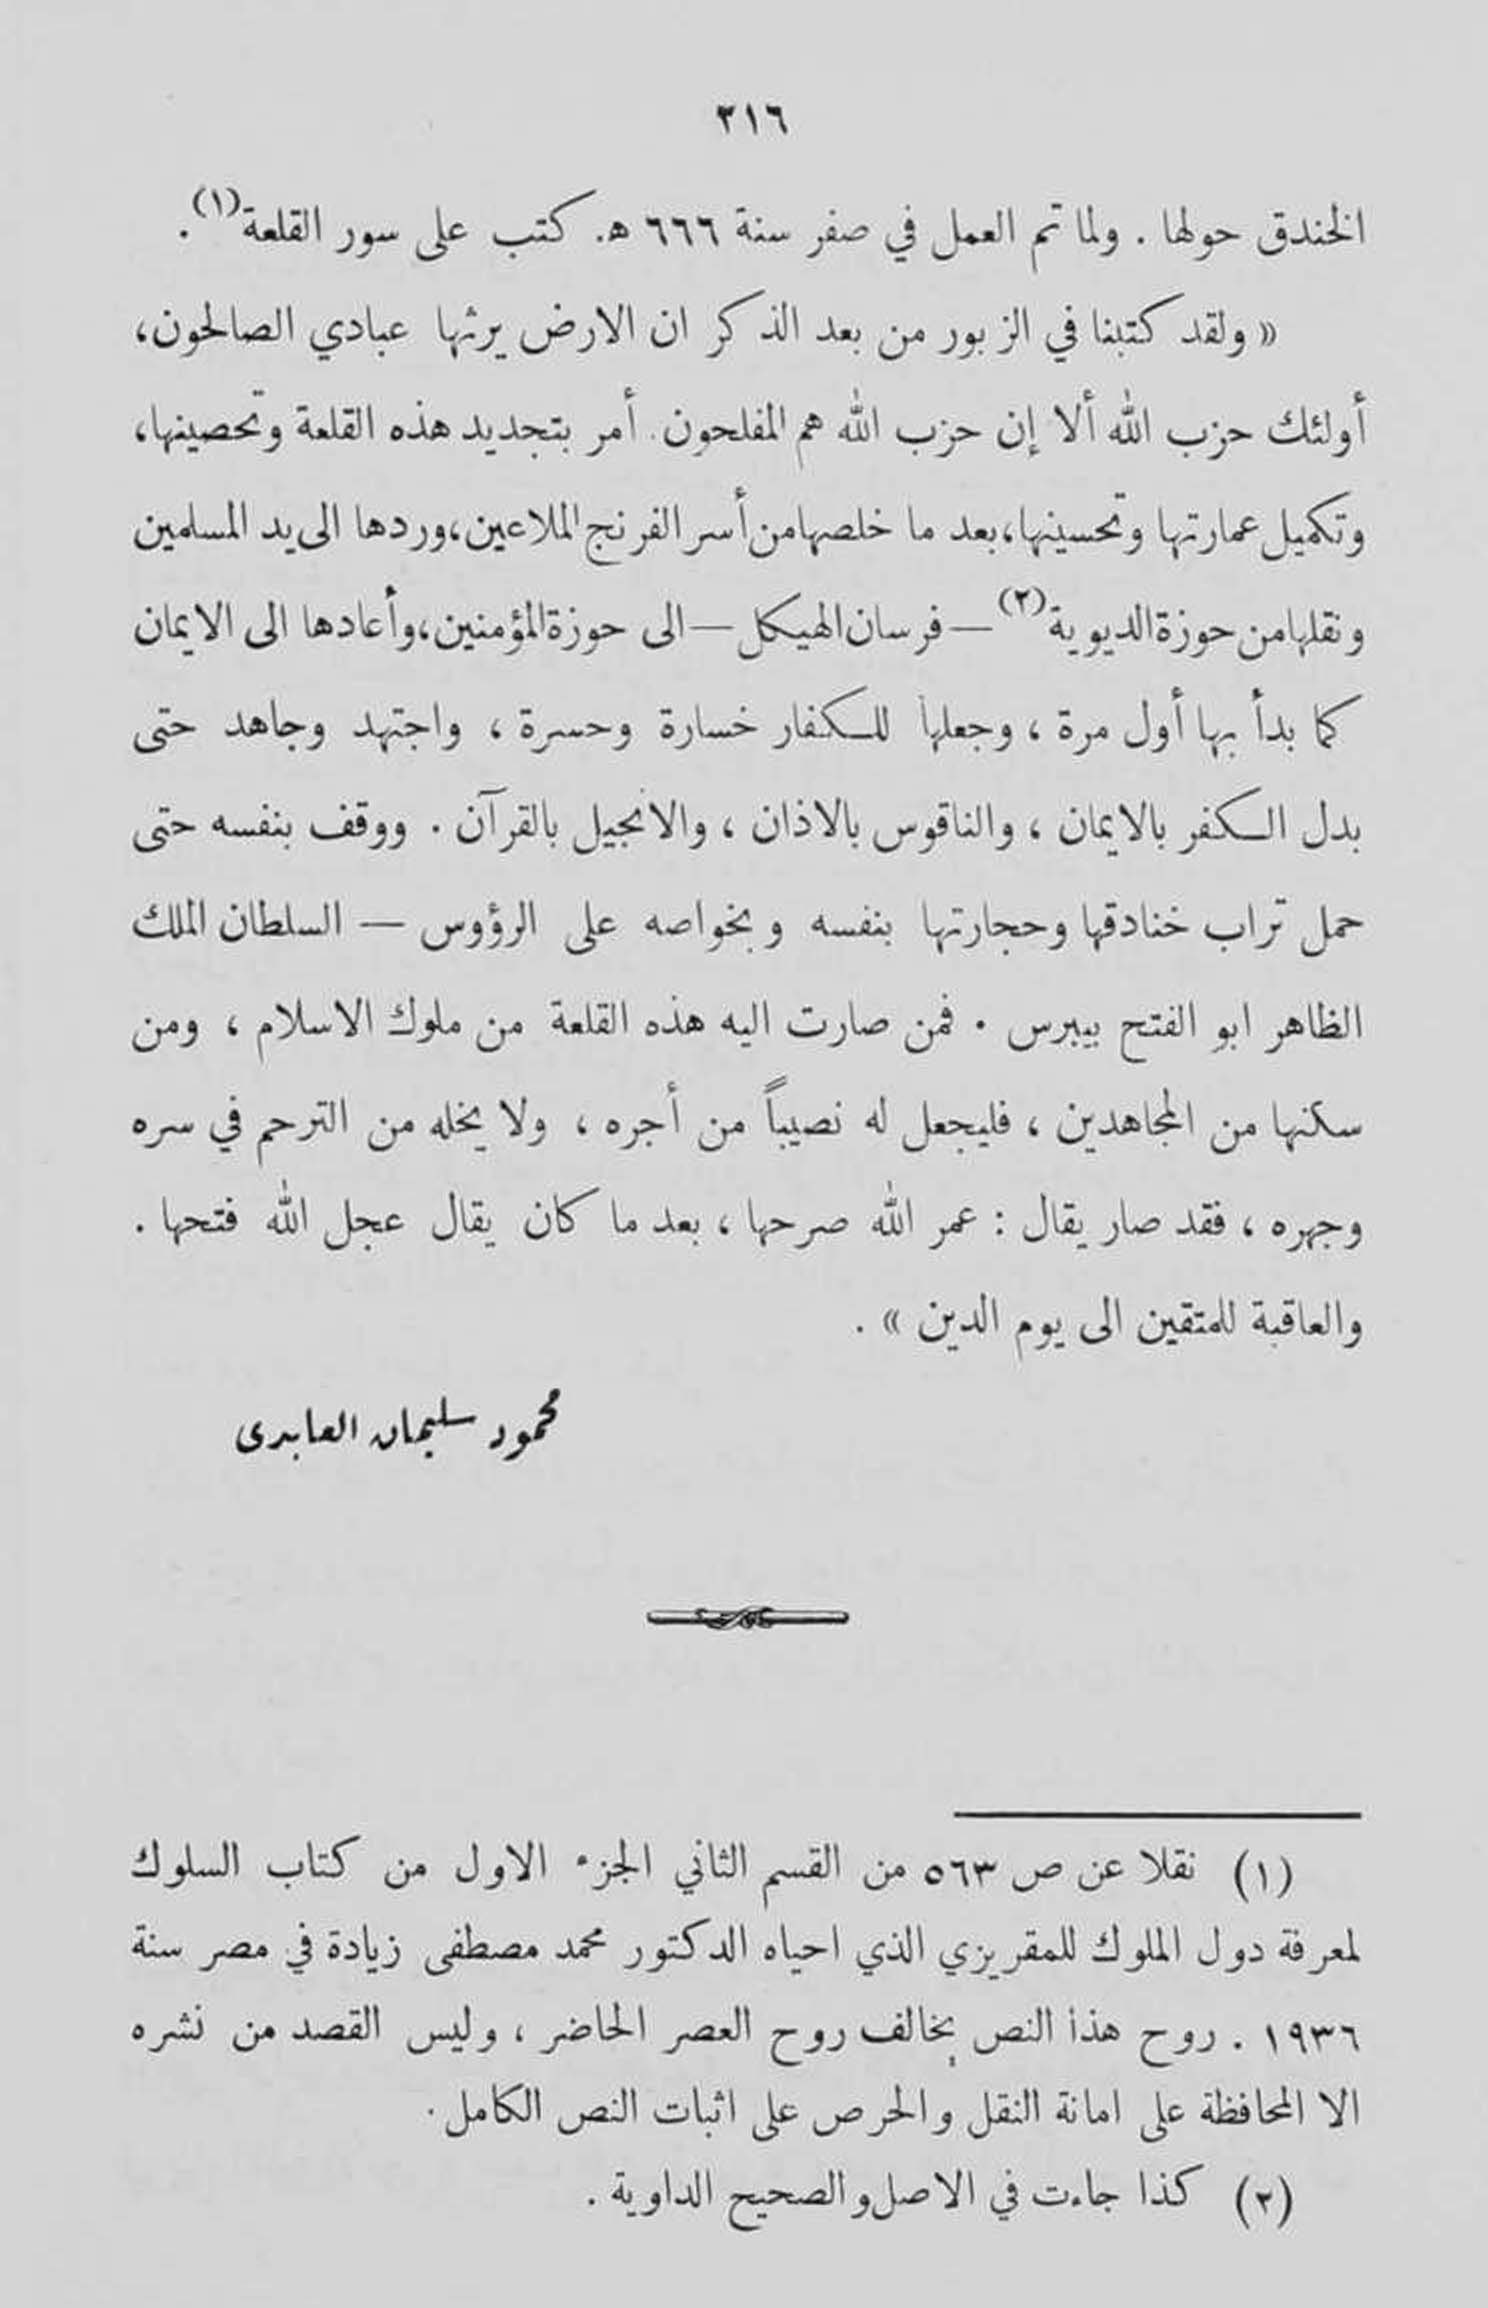 ٣١٦
الخندق حولها . ولما تم العمل في صفر سنة ٦٦٦ هـ. كتب على سور القلعة(١).
« ولقد كتبنا في الزبور من بعد الذكر ان الارض يرثها عبادي الصالحون،
أولئك حزب الله ألا إن حزب الله هم المفلحون. أمر بتجديد هذه القلعة وتحصينها،
وتكميل عمارتها وتحسينها، بعد ما خلصها من أسر الفرنج الملاعين، وردها الى يد المسلمين
ونقلها من حوزة الديوية(٢) — فرسان الهيكل — الى حوزة المؤمنين، وأعادها الى الايمان
كما بدأ بها أول مرة ، وجعلها للكفار خسارة وحسرة ، واجتهد وجاهد حتى
بدل الكفر بالايمان ، والناقوس بالاذان ، والانجيل بالقرآن . ووقف بنفسه حتى
حمل تراب خنادقها وحجارتها بنفسه وبخواصه على الرؤوس — السلطان الملك
الظاهر ابو الفتح بيبرس . فمن صارت اليه هذه القلعة من ملوك الاسلام ، ومن
سكنها من المجاهدين ، فليجعل له نصيباً من أجره ، ولا يخله من الترحم في سره
وجهره ، فقد صار يقال : عمر الله صرحها ، بعد ما كان يقال عجل الله فتحها .
والعاقبة للمتقين الى يوم الدين » .
محمود سليمان العابدى
(١) نقلا عن ص ٥٦٣ من القسم الثاني الجزء الاول من كتاب السلوك
لمعرفة دول الملوك للمقريزي الذي احياه الدكتور محمد مصطفى زيادة في مصر سنة
١٩٣٦ . روح هذا النص يخالف روح العصر الحاضر ، وليس القصد من نشره
الا المحافظة على امانة النقل والحرص على اثبات النص الكامل .
(٢) كذا جاءت في الاصل والصحيح الداوية .